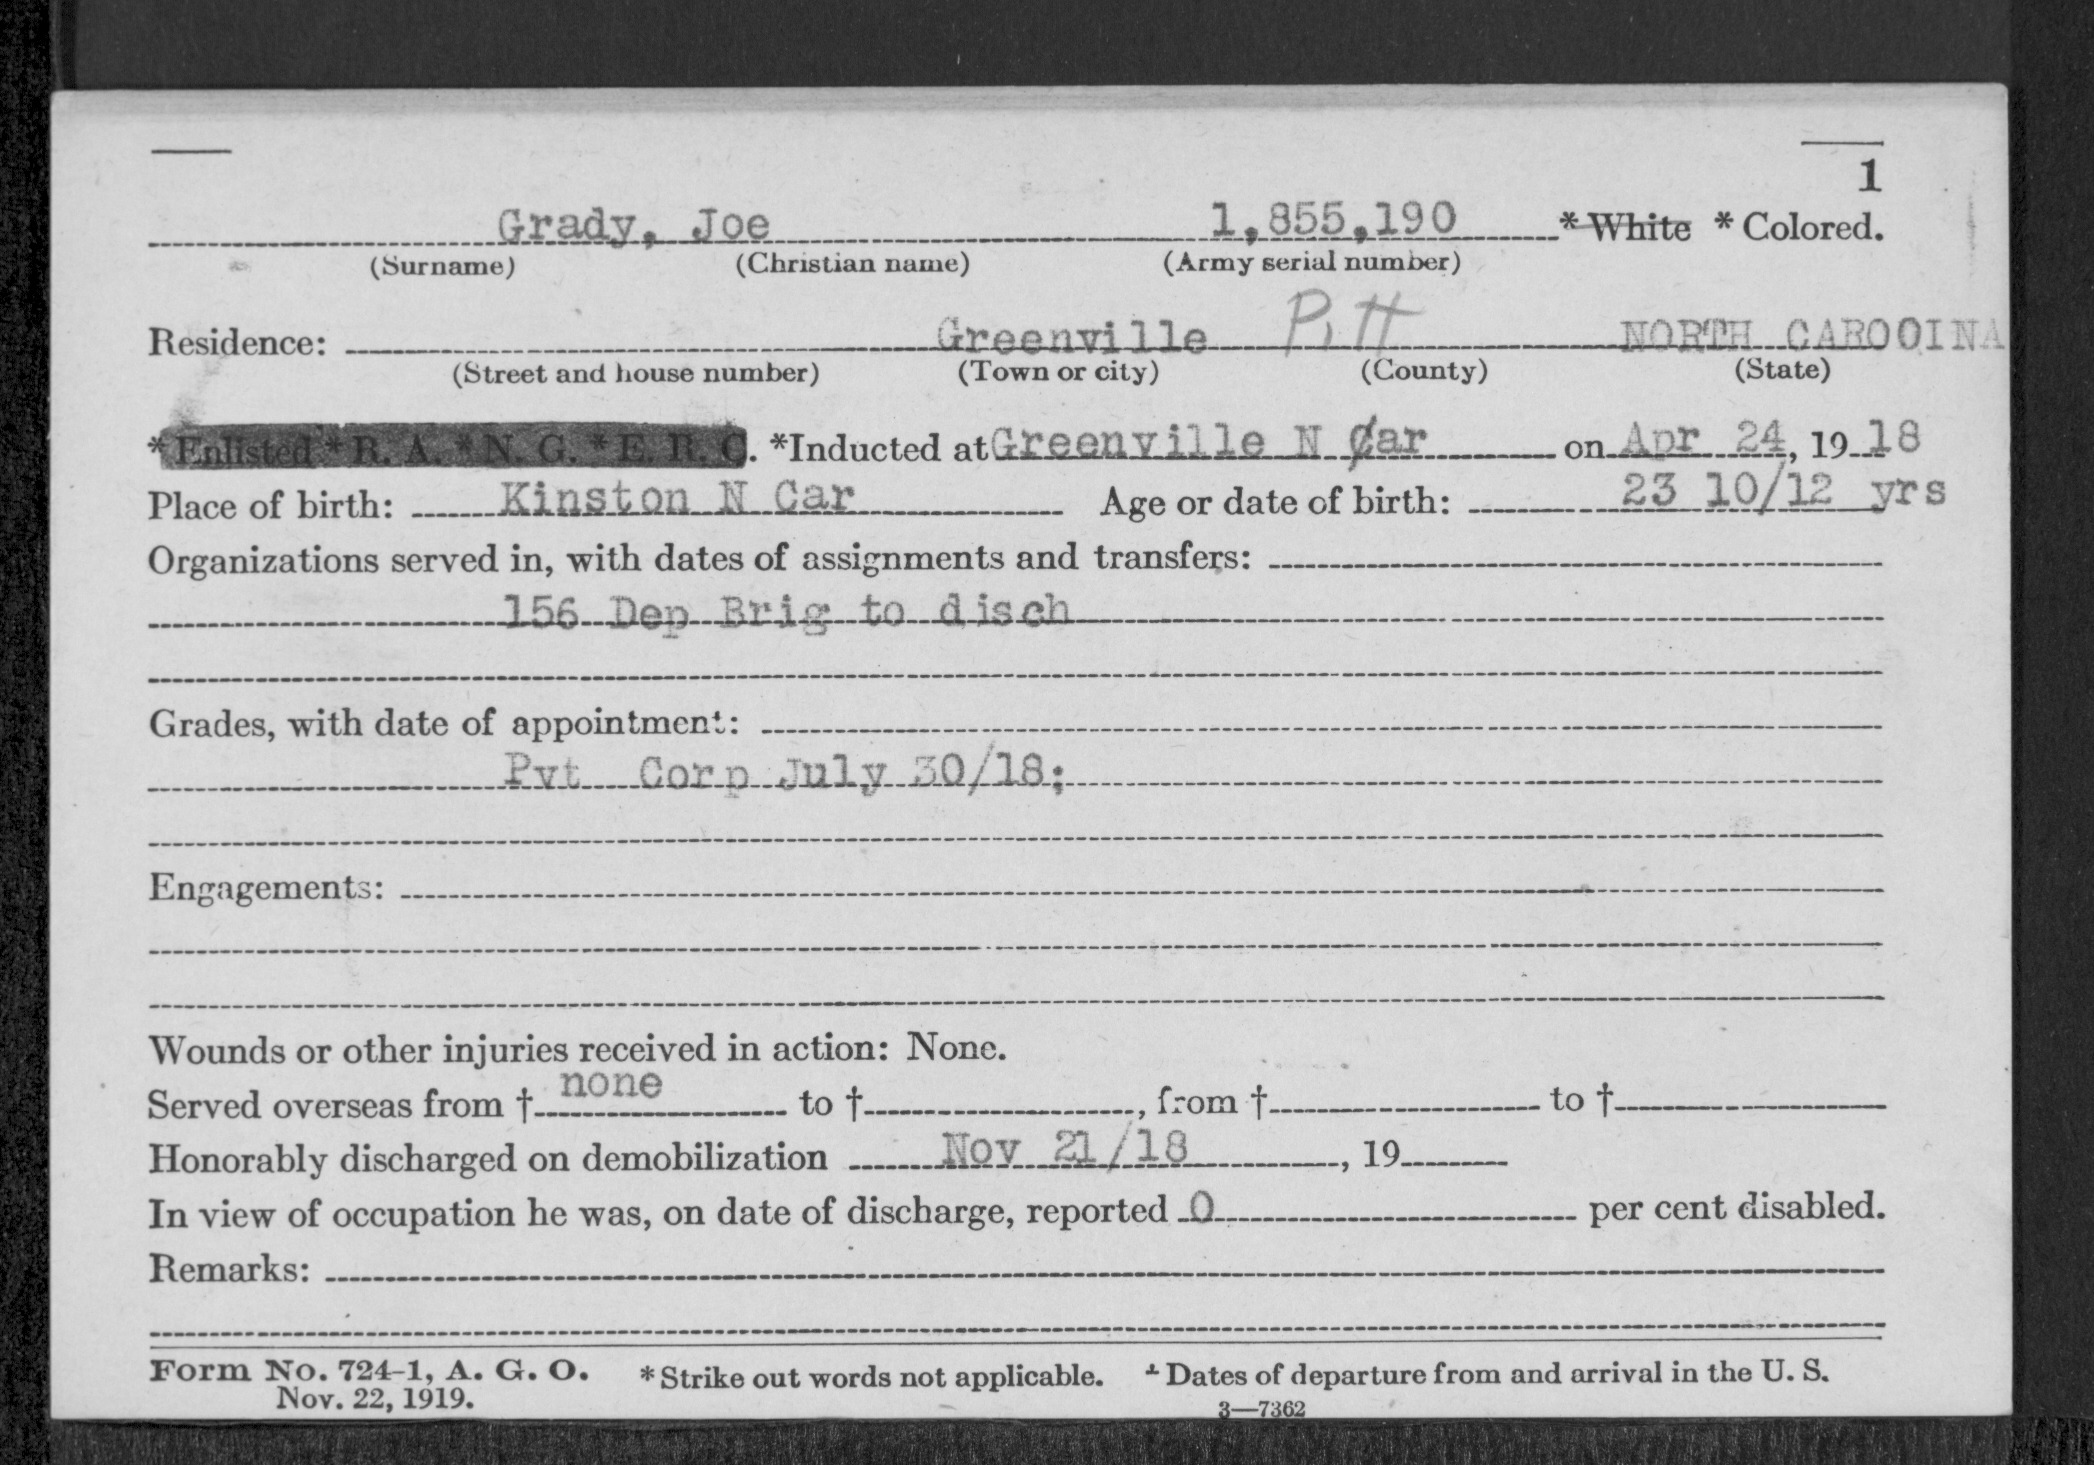 1
Grady, Joe 1,855,190 * White * Colored.
(Surname) (Christian name) (Army serial number)
Residence: Greenville Pitt NORTH CAROOINA
(Street and house number) (Town or city) (County) (State)
* Enlisted * R. A. * N. G. * E. R. C. *Inducted at Greenville N Car on Apr 24, 1918
Place of birth: Kinston N Car Age or date of birth: 23 10/12 yrs
Organizations served in, with dates of assignments and transfers:
156 Dep Brig to disch
Grades, with date of appointment:
Pvt Corp July 30/18;
Engagements:
Wounds or other injuries received in action: None.
Served overseas from † none to †, from † to †
Honorably discharged on demobilization Nov 21/18, 19
In view of occupation he was, on date of discharge, reported 0 per cent disabled.
Remarks:
Form No. 724-1, A. G. O. * Strike out words not applicable. † Dates of departure from and arrival in the U. S.
Nov. 22, 1919. 3—7362